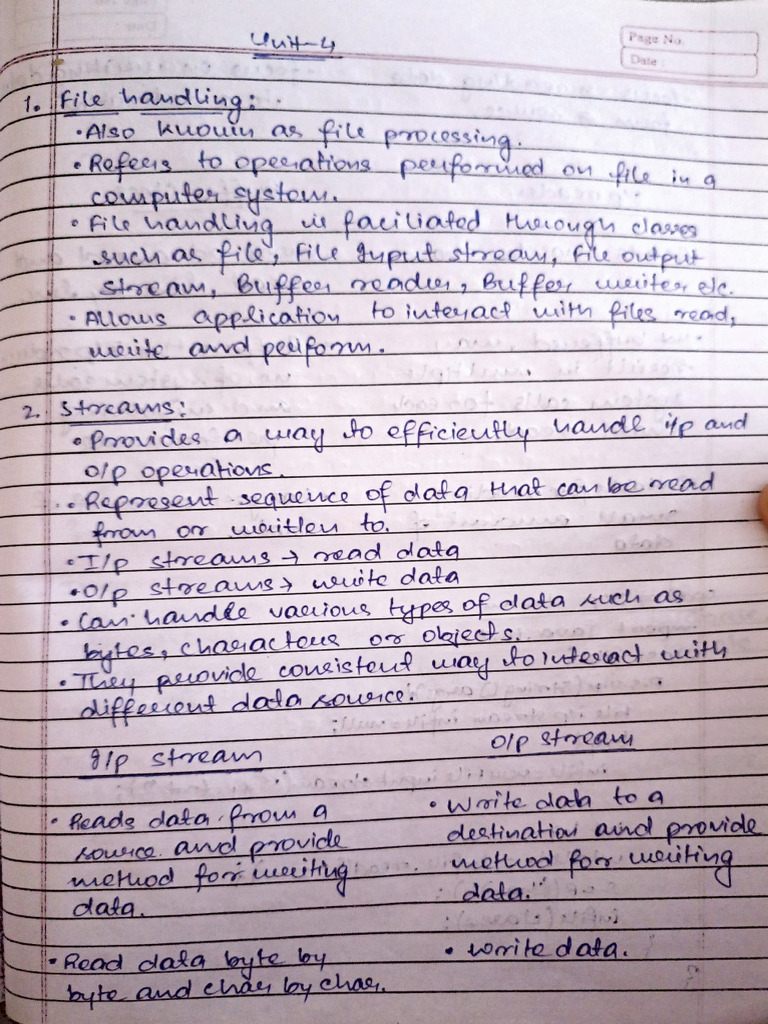 Unit-4
Page No.
Date:
1. File handling:
• Also known as file processing.
• Refers to operations performed on file in a
computer system.
• File handling is faciliated through classes
such as file, File Input stream, File output
stream, Buffer reader, Buffer writer etc.
• Allows application to interact with files read,
write and perform.
2. Streams:
• Provides a way to efficiently handle i/p and
o/p operations.
• Represent sequence of data that can be read
from or written to.
• I/p streams → read data
• O/p streams → write data
• Can handle various types of data such as
bytes, characters or objects.
• They provide consistent way to interact with
different data source.
I/p stream
O/p stream
• Reads data from a
source and provide
method for writing
data.
• Write data to a
destination and provide
method for writing
data.
• Read data byte by
byte and char by char.
• Write data.